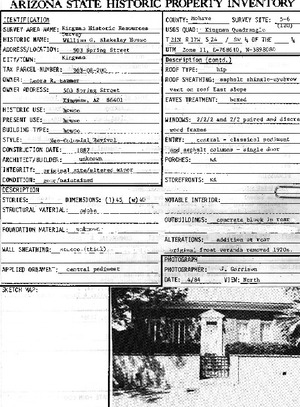 ARIZONA STATE HISTORIC PROPERTY INVENTORY
IDENTIFICATION
SURVEY AREA NAME: Kingman Historic Resources Survey
HISTORIC NAME: William G. Blakeley House
ADDRESS/LOCATION: 503 Spring Street
CITY/TOWN: Kingman
TAX PARCEL NUMBER:
OWNER:
OWNER ADDRESS: 503 Spring Street
Kingman, AZ 86401
HISTORIC USE: home
PRESENT USE: house
BUILDING TYPE: house
STYLE: Neo-Colonial Revival
CONSTRUCTION DATE: 1887
ARCHITECT/BUILDER: unknown
INTEGRITY: original site/altered minor
CONDITION: good/maintained
DESCRIPTION
STORIES: DIMENSIONS: (l)45 (w)40
STRUCTURAL MATERIAL: adobe
FOUNDATION MATERIAL: unknown
WALL SHEATHING: stucco
APPLIED ORNAMENT: central pediment
SKETCH MAP:
COUNTY: Mohave SURVEY SITE: 5-6
USGS QUAD: Kingman Quadrangle
Description (contd.)
ROOF TYPE: hip
ROOF SHEATHING: asphalt shingle-eyebrow
vent on East slope
EAVES TREATMENT: boxed
WINDOWS: 2/2 paired and
wood frames
ENTRY: central - classical pediment
and columns - single door
PORCHES: NA
STOREFRONTS: NA
NOTABLE INTERIOR:
OUTBUILDINGS: concrete block in rear
ALTERATIONS: addition at rear
original front veranda removed 1920s
PHOTOGRAPH
PHOTOGRAPHER: J. Garrison
DATE: 4/84 VIEW: North